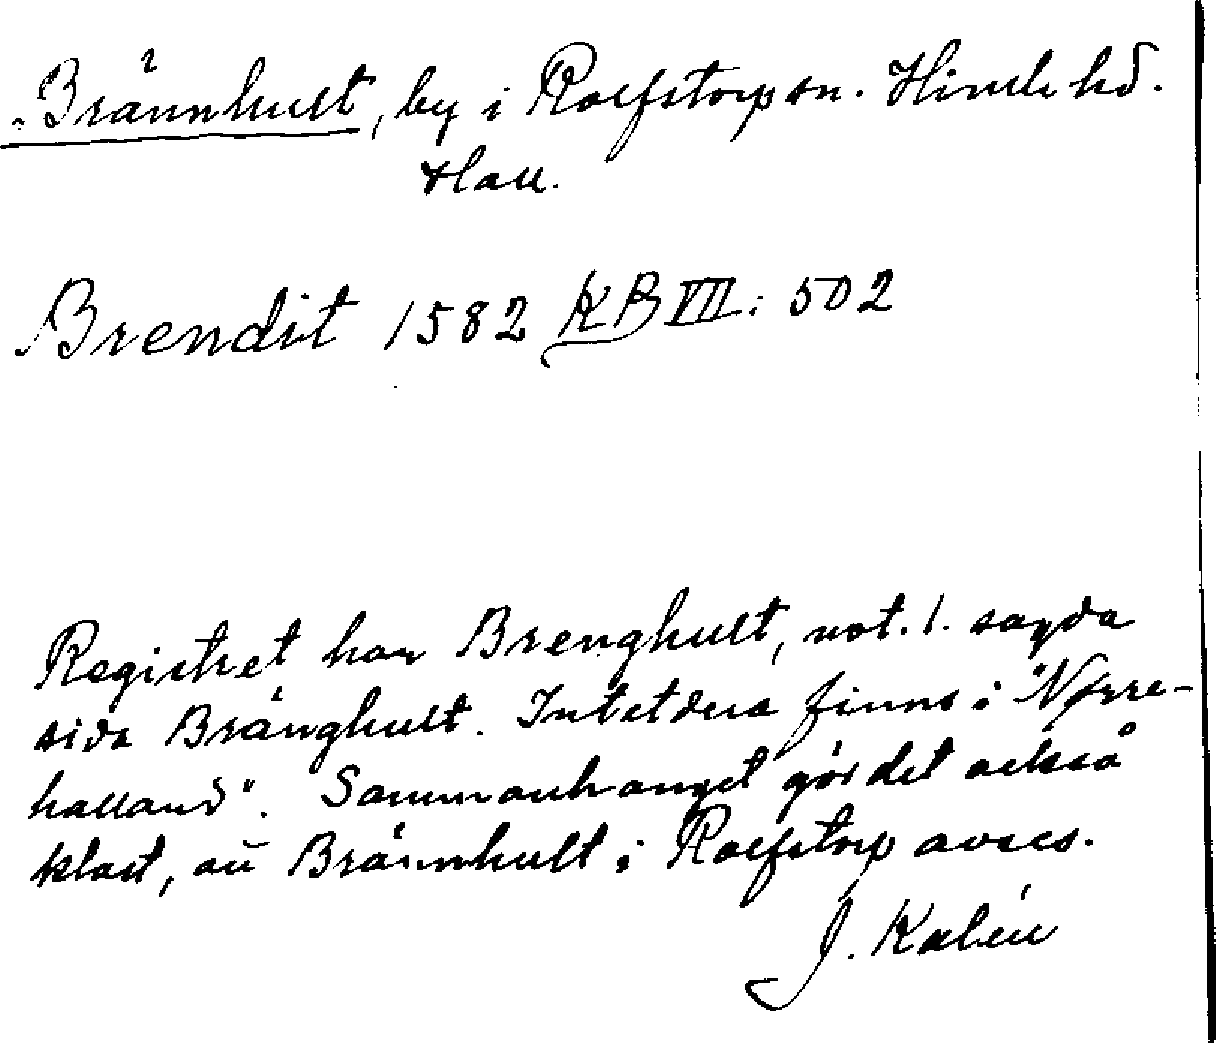 Brännhult, by i Rolfstorp sn. Himle hd.
Hall.
Brendit 1582 KB VII: 502
Registret har Brenghult, not. 1. sagda
sida Bränghult. Intetdera finns i "Nørre-
halland". Sammanhanget gör det också
klart, att Brännhult i Rolfstorp avses.
J. Kalén